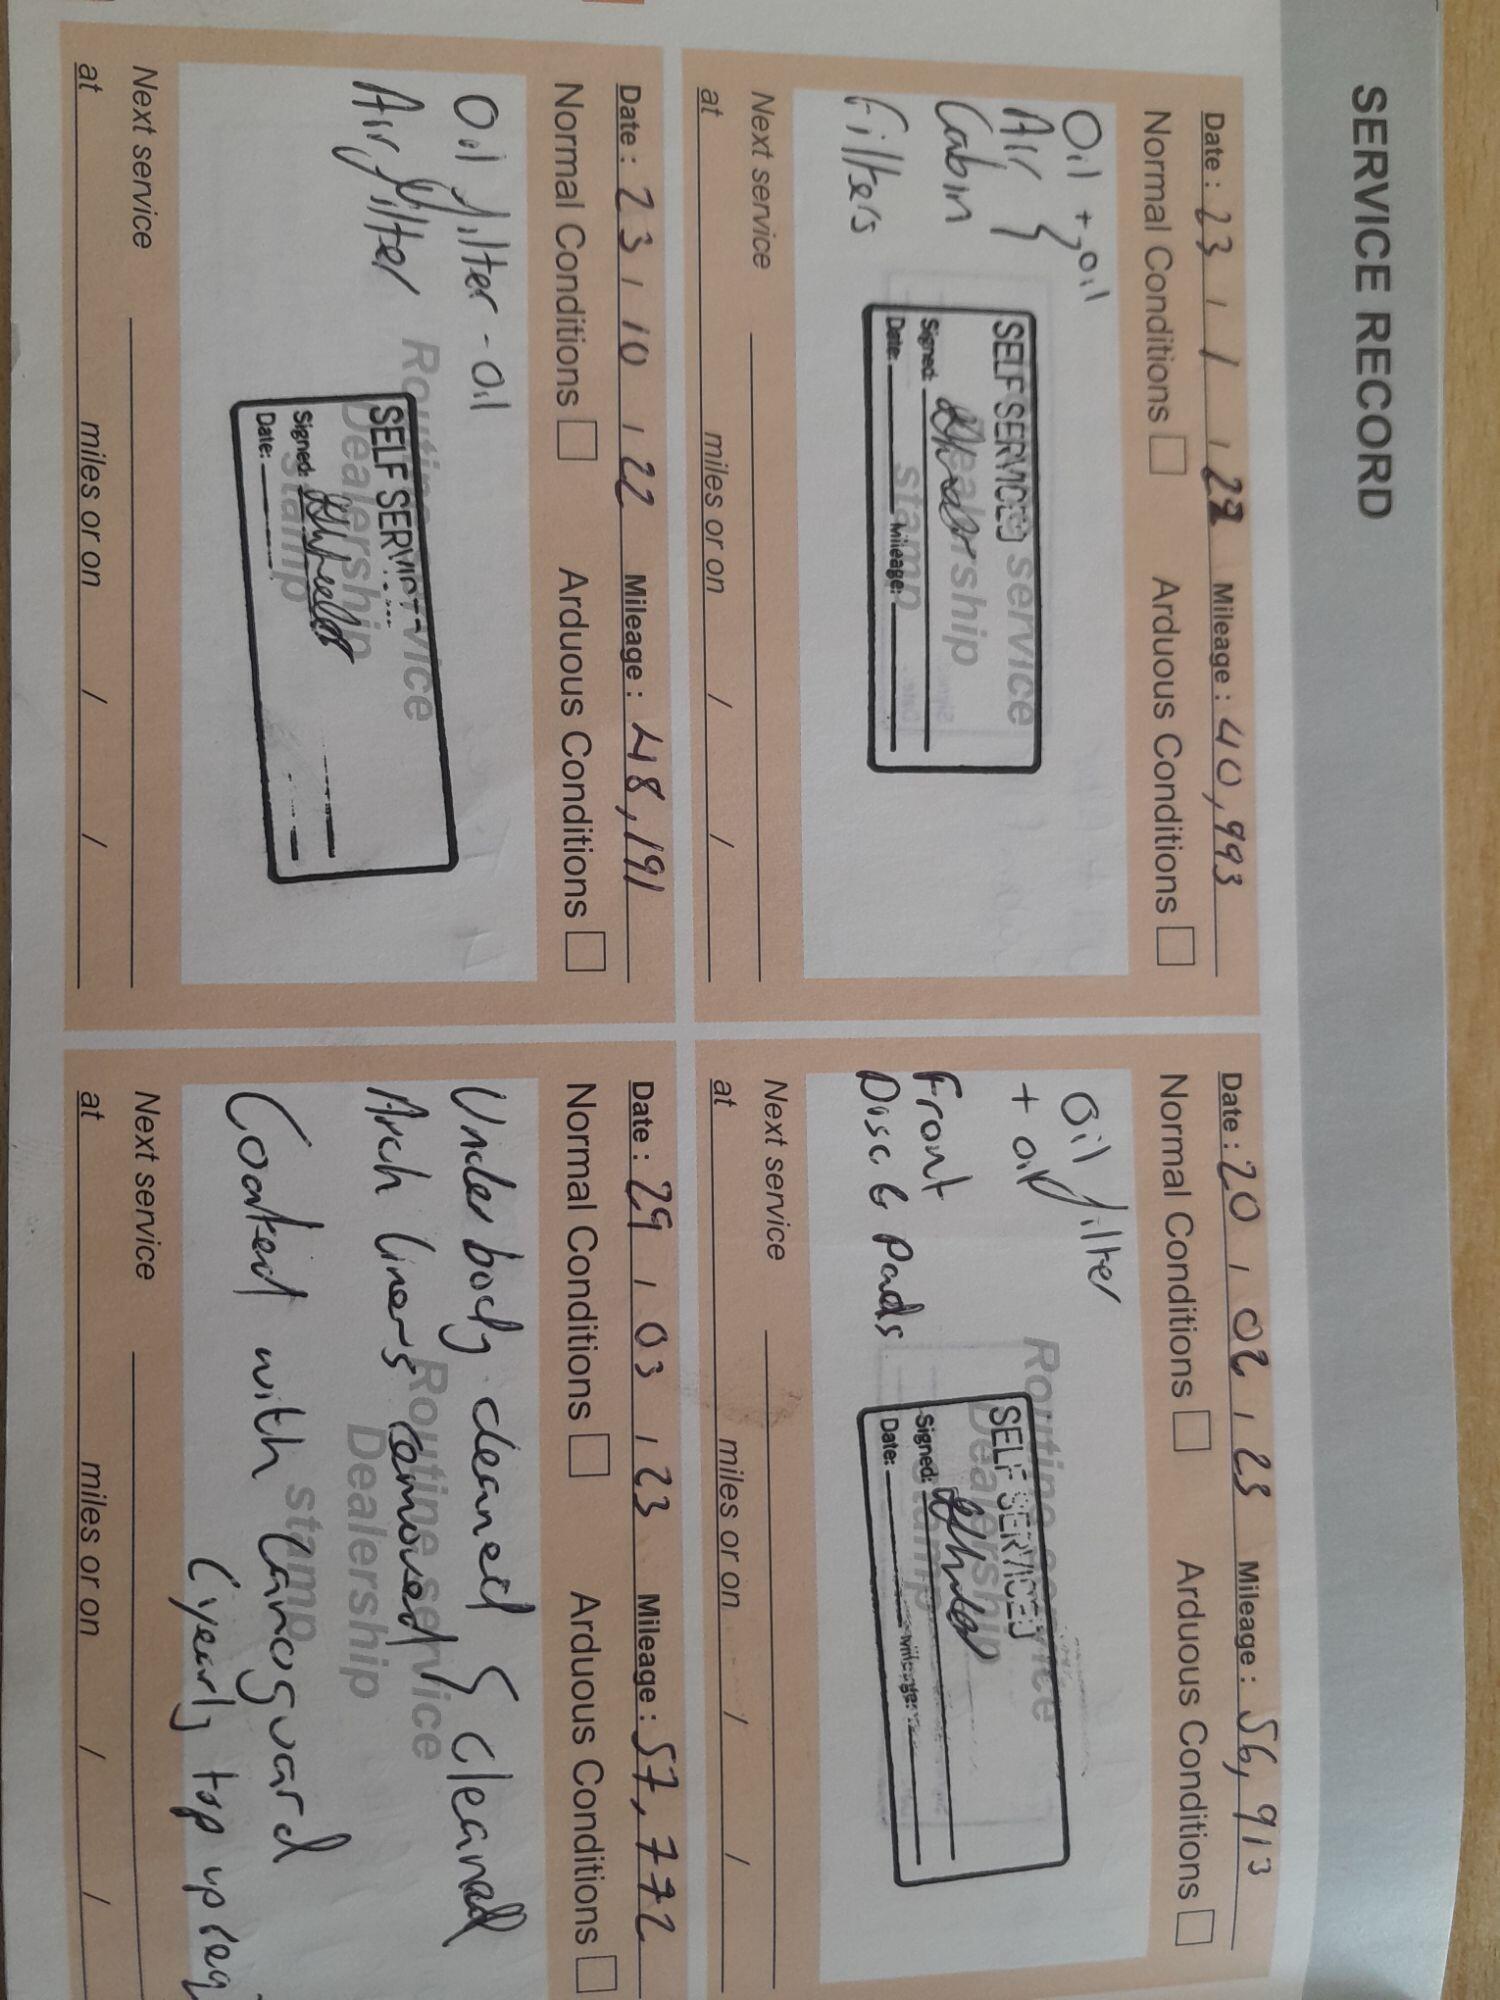 SERVICE RECORD
Date : 23 / 1 / 22 Mileage : 40,993
Normal Conditions Arduous Conditions
Oil +, oil
Air }
Cabin
Filters
Routine service
Dealership
stamp
SELF SERVICED
Signed:
Date: Mileage:
Next service
at miles or on / /
Date : 20 / 02 / 23 Mileage : 56,913
Normal Conditions Arduous Conditions
Oil filter
+ oil
Front
Disc & Pads
Routine service
Dealership
stamp
SELF SERVICED
Signed:
Date: Mileage:
Next service
at miles or on / /
Date : 23 / 10 / 22 Mileage : 48,191
Normal Conditions Arduous Conditions
Oil filter - oil
Air filter
Routine service
Dealership
stamp
SELF SERVICED
Signed:
Date:
Next service
at miles or on / /
Date : 29 / 03 / 23 Mileage : 57,772
Normal Conditions Arduous Conditions
Under body cleaned
Arch liners removed & cleaned
Coated with Lanoguard
(yearly top up req
Routine service
Dealership
stamp
Next service
at miles or on / /